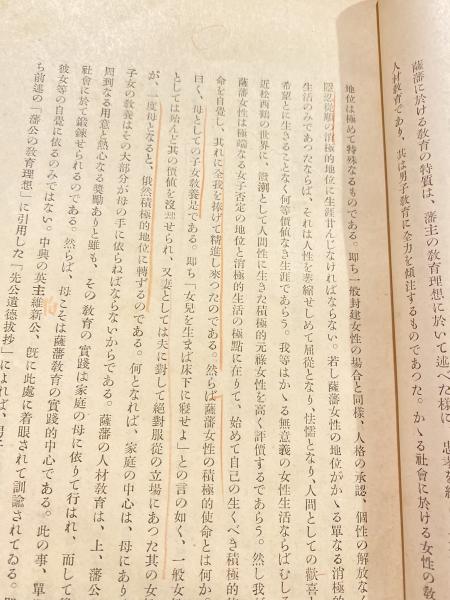 薩藩に於ける教育の特質は、藩主の教育理想に於いて述べた様に、忠孝を
人材教育であり、其は男子教育に全力を傾注するものであつた。かゝる社會に於ける女性の教
地位は極めて特殊なるものである。即ち一般封建女性の場合と同様、人格の承認、個性の解放な
隠忍従順の消極的地位に生涯甘んじなければならない。若し薩藩女性の地位がかゝる單なる消極
生活のみであつたならば、それは人性を萎縮せしめて屈従となり、怯懦となり、人間としての歡喜、
希望とに生きることなく何等價値なき生涯であらう。我等はかゝる無意義の女性生活ならばむしろ
近松西鶴の世界に、潑溂として人間性に生きた積極的元祿女性を高く評價するであらう。然し我
薩藩女性は極端なる女子否定の地位と消極的生活の極點に在りて、始めて自己の生くべき積極的
命を自覺し、其れに全我を捧げて精進し來つたのである。然らば薩藩女性の積極的使命とは何か
曰く、母としての子女敎養是である。即ち「女兒を生まば床下に寢せよ」との言の如く、一般女
としては殆んど其の價値を沒せられ、又妻としては夫に對して絕對服從の立場にあつた其の女
が、一度母となると、俄然積極的地位に轉ずるのである。何となれば、家庭の中心は、母にあり
子女の敎養はその大部分が母の手に依らねばならないからである。薩藩の人材敎育は、上、藩公
周到なる用意と熱心なる奬勵ありと雖も、その敎育の實踐は家庭の母に依りて行はれ、而して
社會に於て鍛錬せられるのである。然らば、母こそは薩藩敎育の實踐的中心である。此の事、單
彼女等の自覺に依るのみではない。中興の英主維新公、旣に此處に着眼されて訓諭されてゐる。
ち前述の「藩公の敎育理想」に引用した「先公遺德拔抄」によれば、